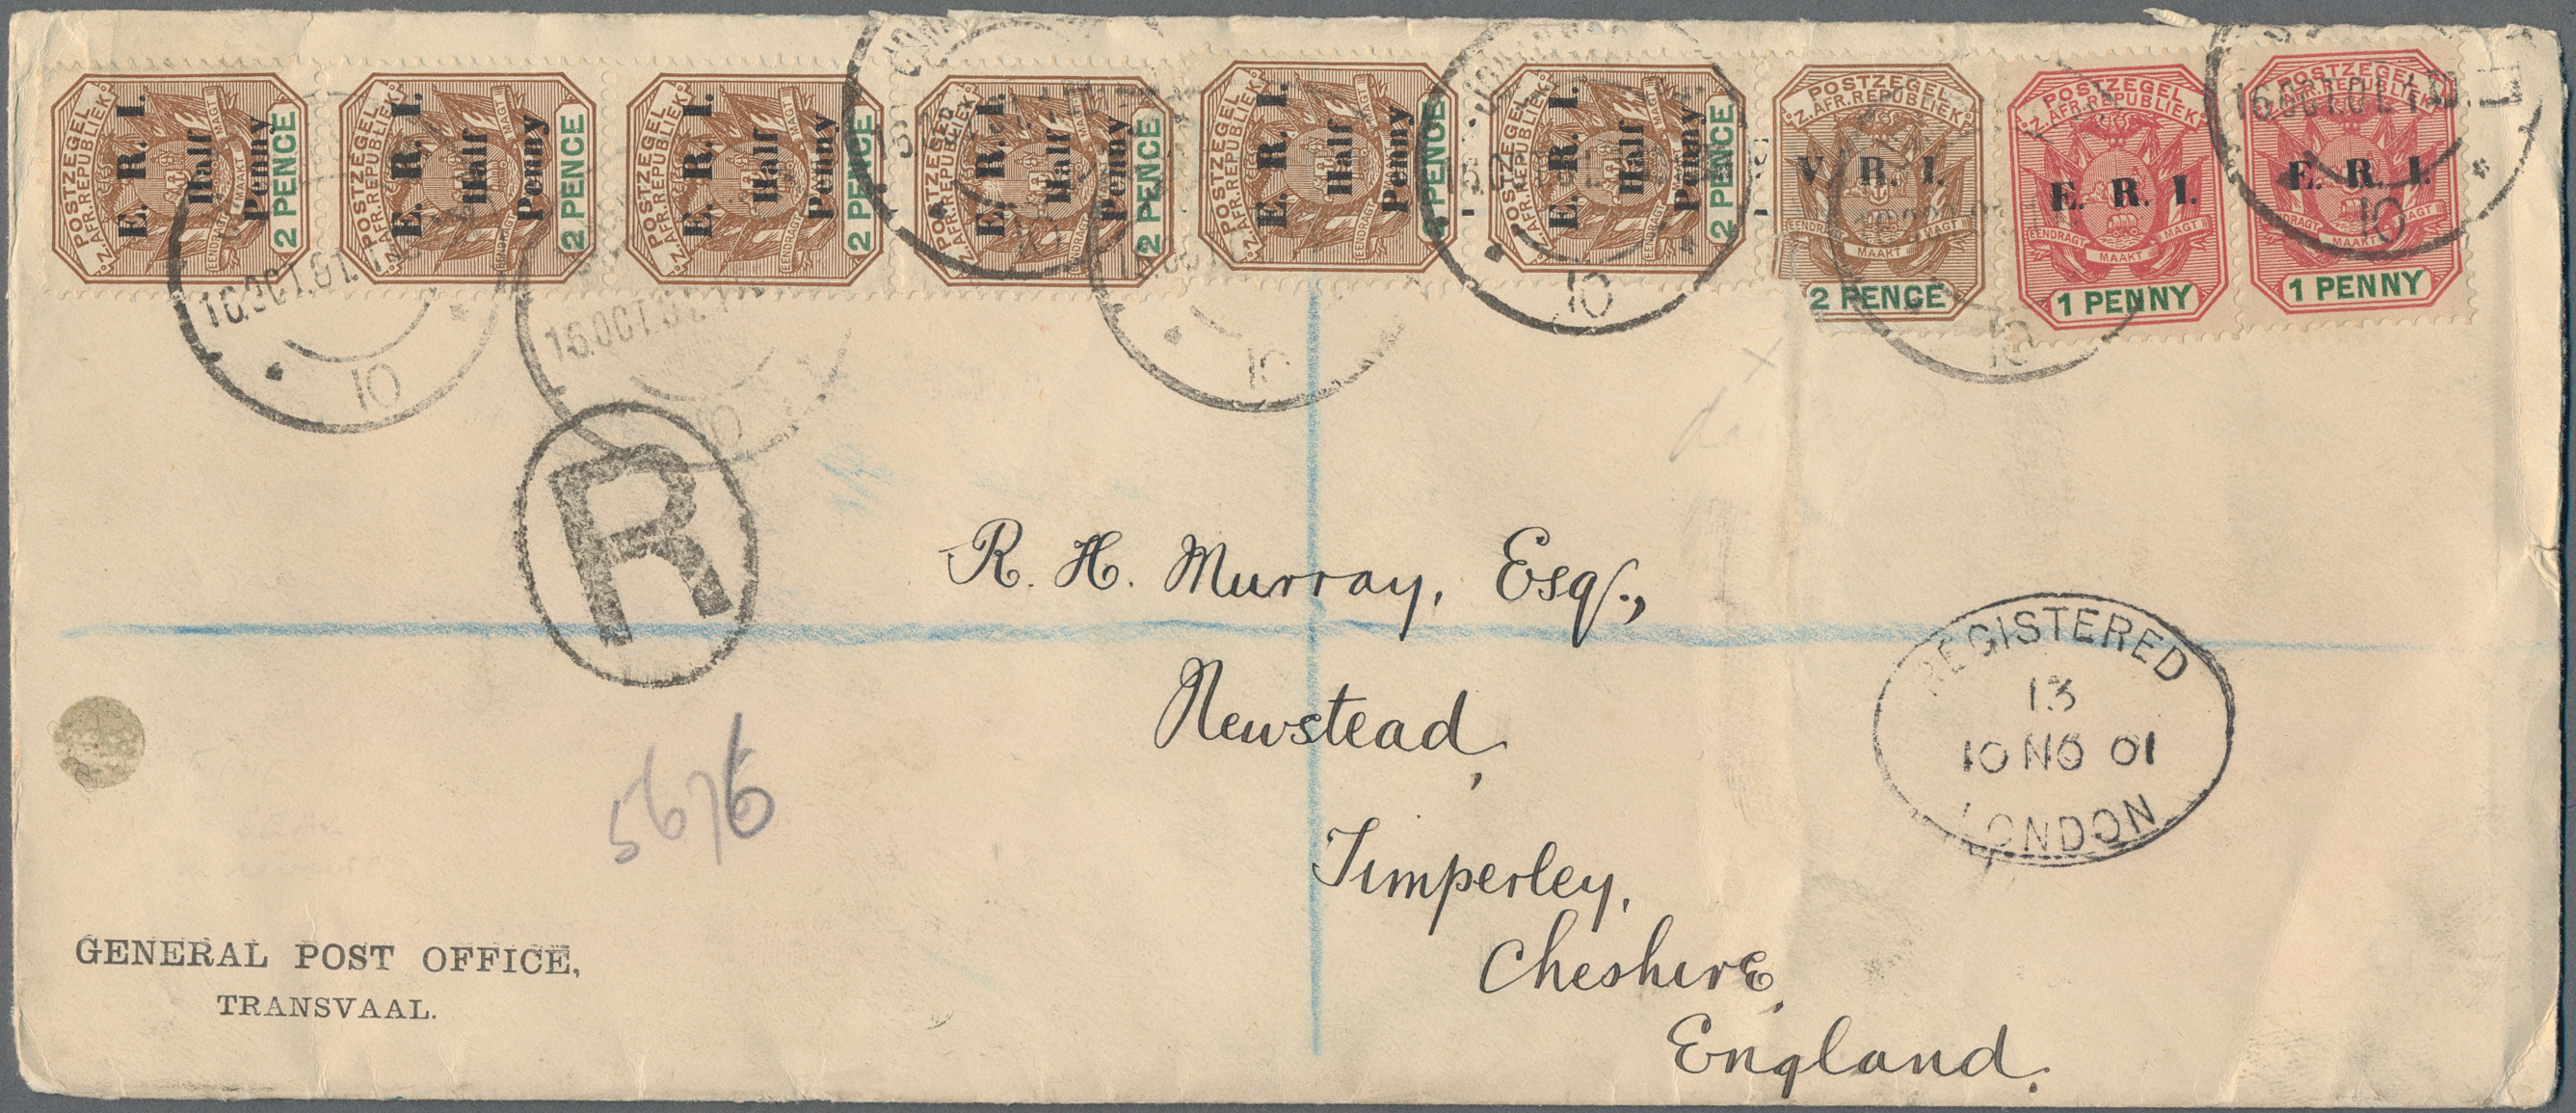 POSTZEGEL
Z. AFR. REPUBLIEK
E. R. I.
Half
Penny
EENDRAGT MAAKT MAGT
2 PENCE
POSTZEGEL
Z. AFR. REPUBLIEK
E. R. I.
Half
Penny
MAGT
2 PENCE
POSTZEGEL
Z. AFR. REPUBLIEK
E. R. I.
Half
Penny
EENDRAGT MAGT
2 PENCE
POSTZEGEL
E. R. I.
Half
Penny
2 PENCE
POSTZEGEL
Z. AFR. REPUBLIEK
E. R. I.
Half
Penny
EENDRAGT MAGT
2 PENCE
POSTZEGEL
Z. AFR. REPUBLIEK
E. R. I.
Half
Penny
EENDRAGT MAGT
2 PENCE
POSTZEGEL
Z. AFR. REPUBLIEK
V. R. I.
EENDRAGT MAAKT MAGT
2 PENCE
POSTZEGEL
Z. AFR. REPUBLIEK
E. R. I.
EENDRAGT MAAKT MAGT
1 PENNY
POSTZEGEL
Z. AFR. REPUBLIEK
E. R. I.
EENDRAGT MAAKT MAGT
1 PENNY
16.OCT.01.
10
16.OCT.01.
10
10
10
10
16.OCT.01.
10
R
R. H. Murray, Esq.,
Newstead,
Timperley,
Cheshire,
England.
REGISTERED
13
10 NO 01
LONDON
5676
GENERAL POST OFFICE,
TRANSVAAL.